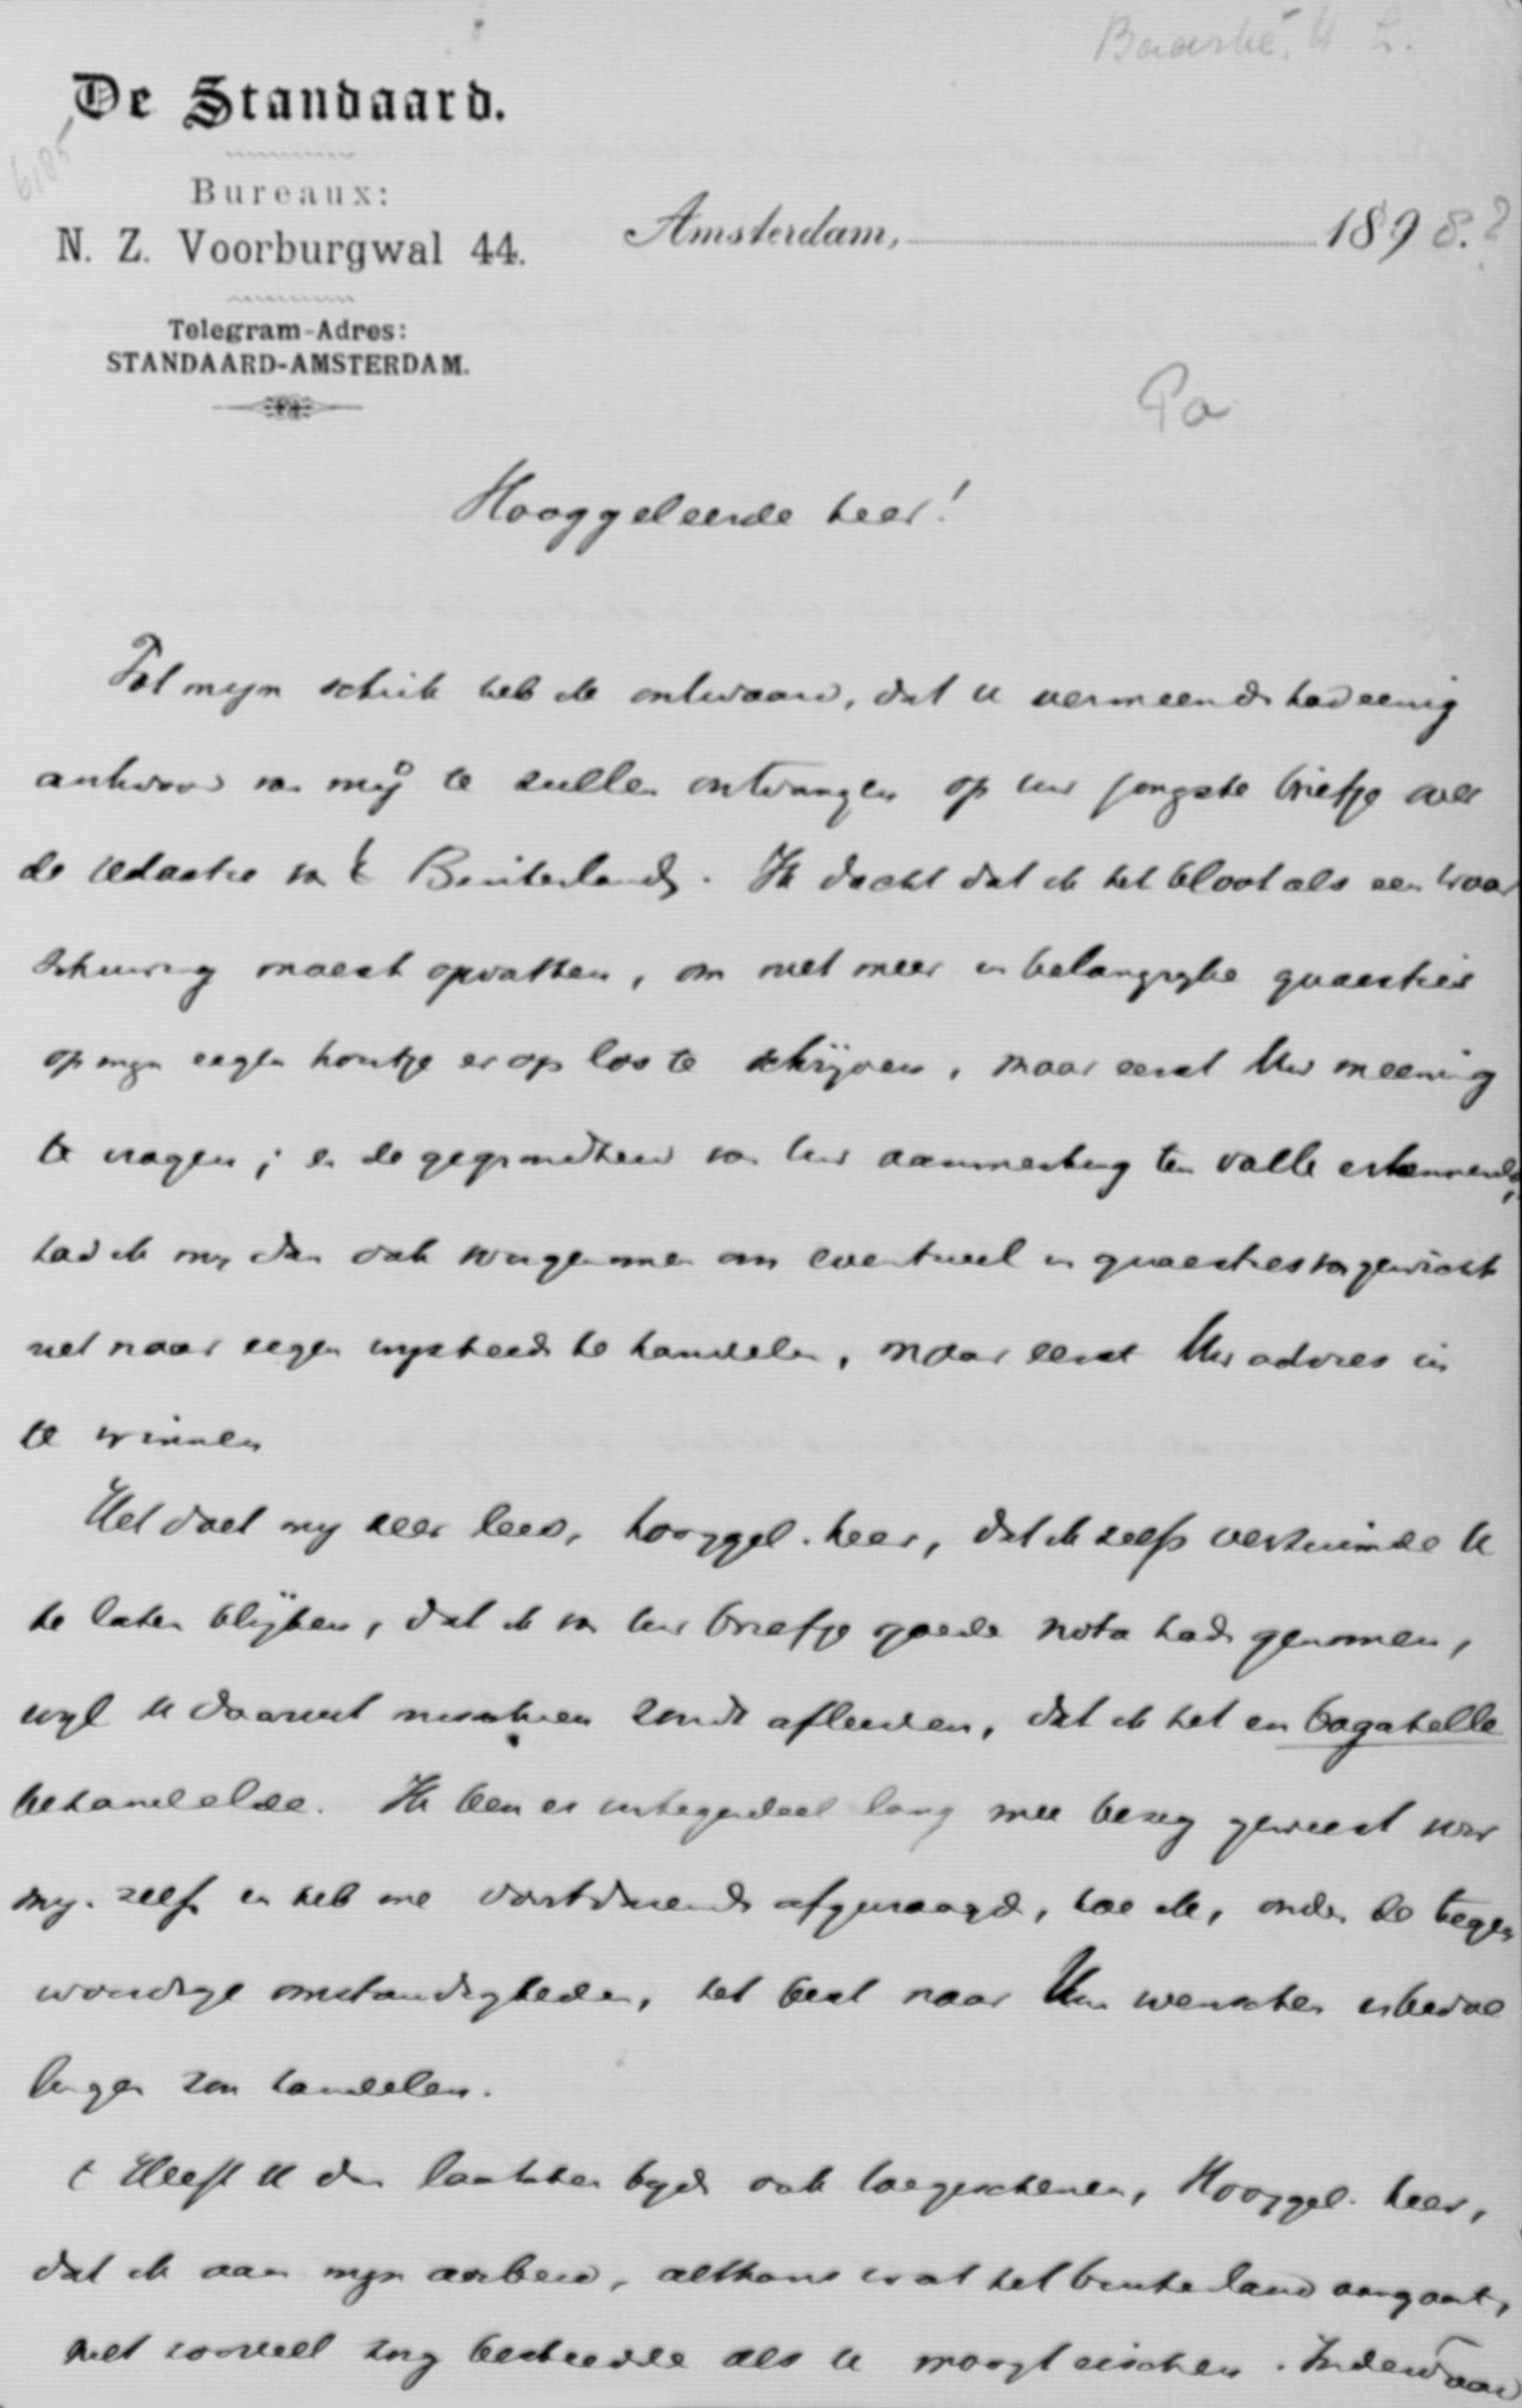 De Standaard.
6185
Bureaux:
N. Z. Voorburgwal 44.
Amsterdam, 1898.?
Telegram-Adres:
STANDAARD-AMSTERDAM.
Pa
Hooggeleerde heer!
Tot mijn schrik heb ik ontwaard, dat u vermeend had eenig
antwoord van mij te zullen ontvangen op uw jongste briefje over
de redactie van 't Buitenland. Ik dacht dat ik het bloot als een waar
schuwing moest opvatten, om niet meer in belangrijke quaesties
op mijn eigen houtje er op los te schrijven, maar eerst Uw meening
te vragen; en de gegrondheid van uw aanmerking ten volle erkennend,
had ik mij dan ook voorgenomen om eventueel in quaesties van gewicht
niet naar eigen wijsheid te handelen, maar eerst Uw advies in
te winnen
Het doet mij zeer leed, hooggel. heer, dat ik zelfs verzuimde U
te laten blijken, dat ik van uw briefje goede nota had genomen,
wijl u daaruit misschien zoudt afleiden, dat ik het en bagatelle
behandelde. Ik ben er integendeel lang mee bezig geweest voor
mij zelf en heb me voortdurend afgevraagd, hoe ik, onder de tegen
woordige omstandigheden, het best naar Uw wenschen en bedoe
lingen zou handelen.
't Heeft U den laatsten tijd ook toegeschenen, Hooggel. heer,
dat ik aan mijn arbeid, althans wat het buitenland aangaat,
niet zooveel zorg besteedde als u moogt eischen. Inderdaad